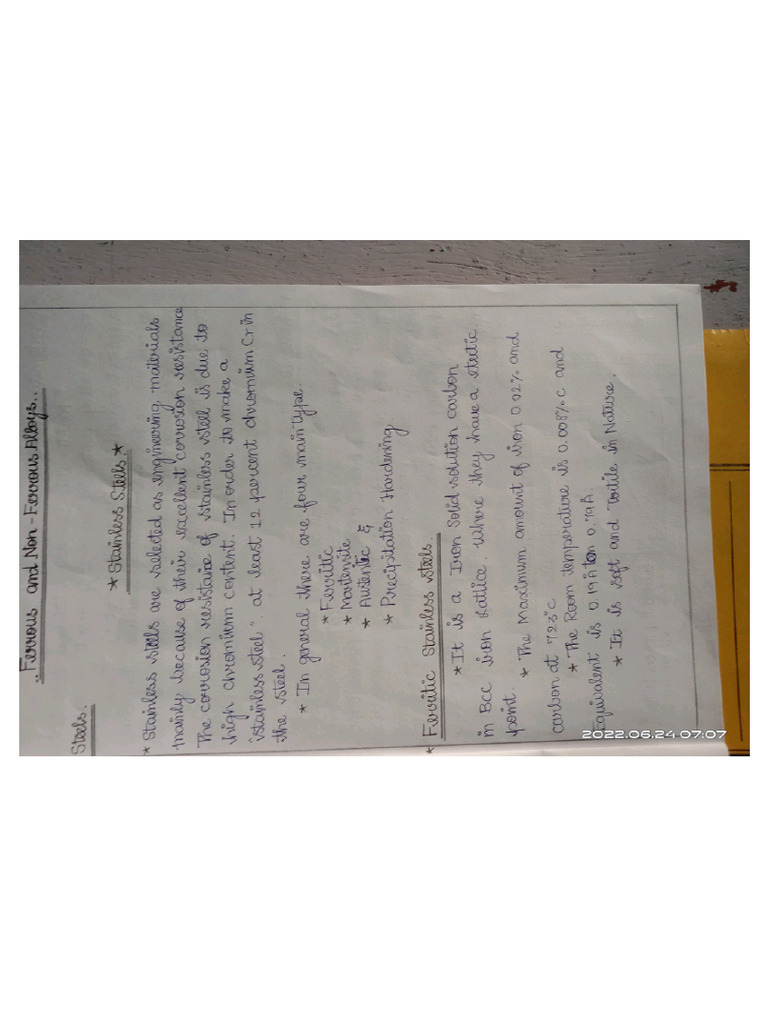 ..Ferrous and Non-Ferrous Alloys..
Steels.
* Stainless Steels *
* Stainless steels are selected as engineering materials
mainly because of their excellent corrosion resistance
The corrosion resistane of stainless steel is due to
high chromium content. In order to make a
"stainless steel" at least 12 percent chromium Cr in
the steel.
* In general there are four main type.
* Ferritic
* Martensite
* Austentic &
* Precipitation Hardening
* Ferritic Stainless steels.
* It is a Iron Solid solution carbon
in Bcc iron Lattice. Where they have a stetic
point.
* The Maximum amount of iron 0.02% and
carbon at 723°c
* The Room temperature is 0.008% c and
Equivalent is 0.19Å ton 0.79Å.
* It is soft and Tortile in Nature.
2022.06.24 07:07